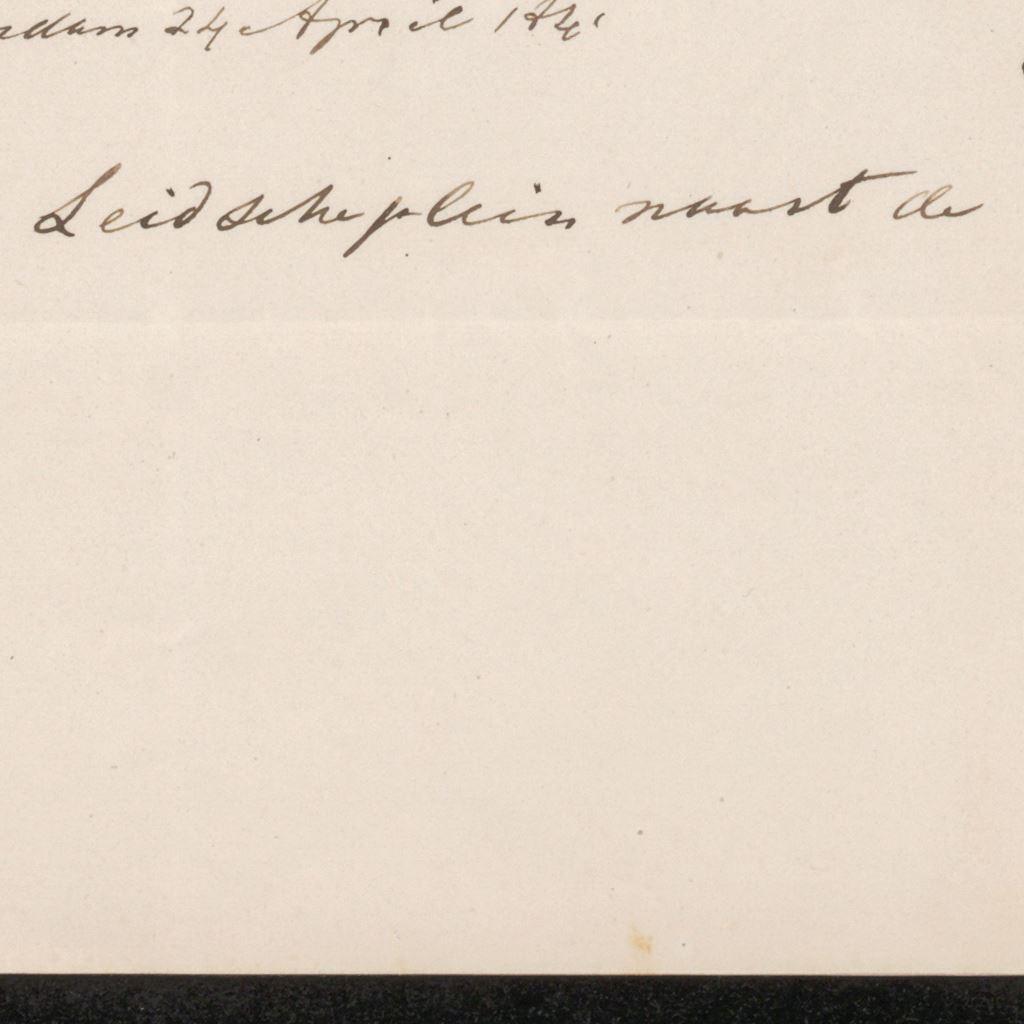 dam 24 April
Leidscheplein naast de